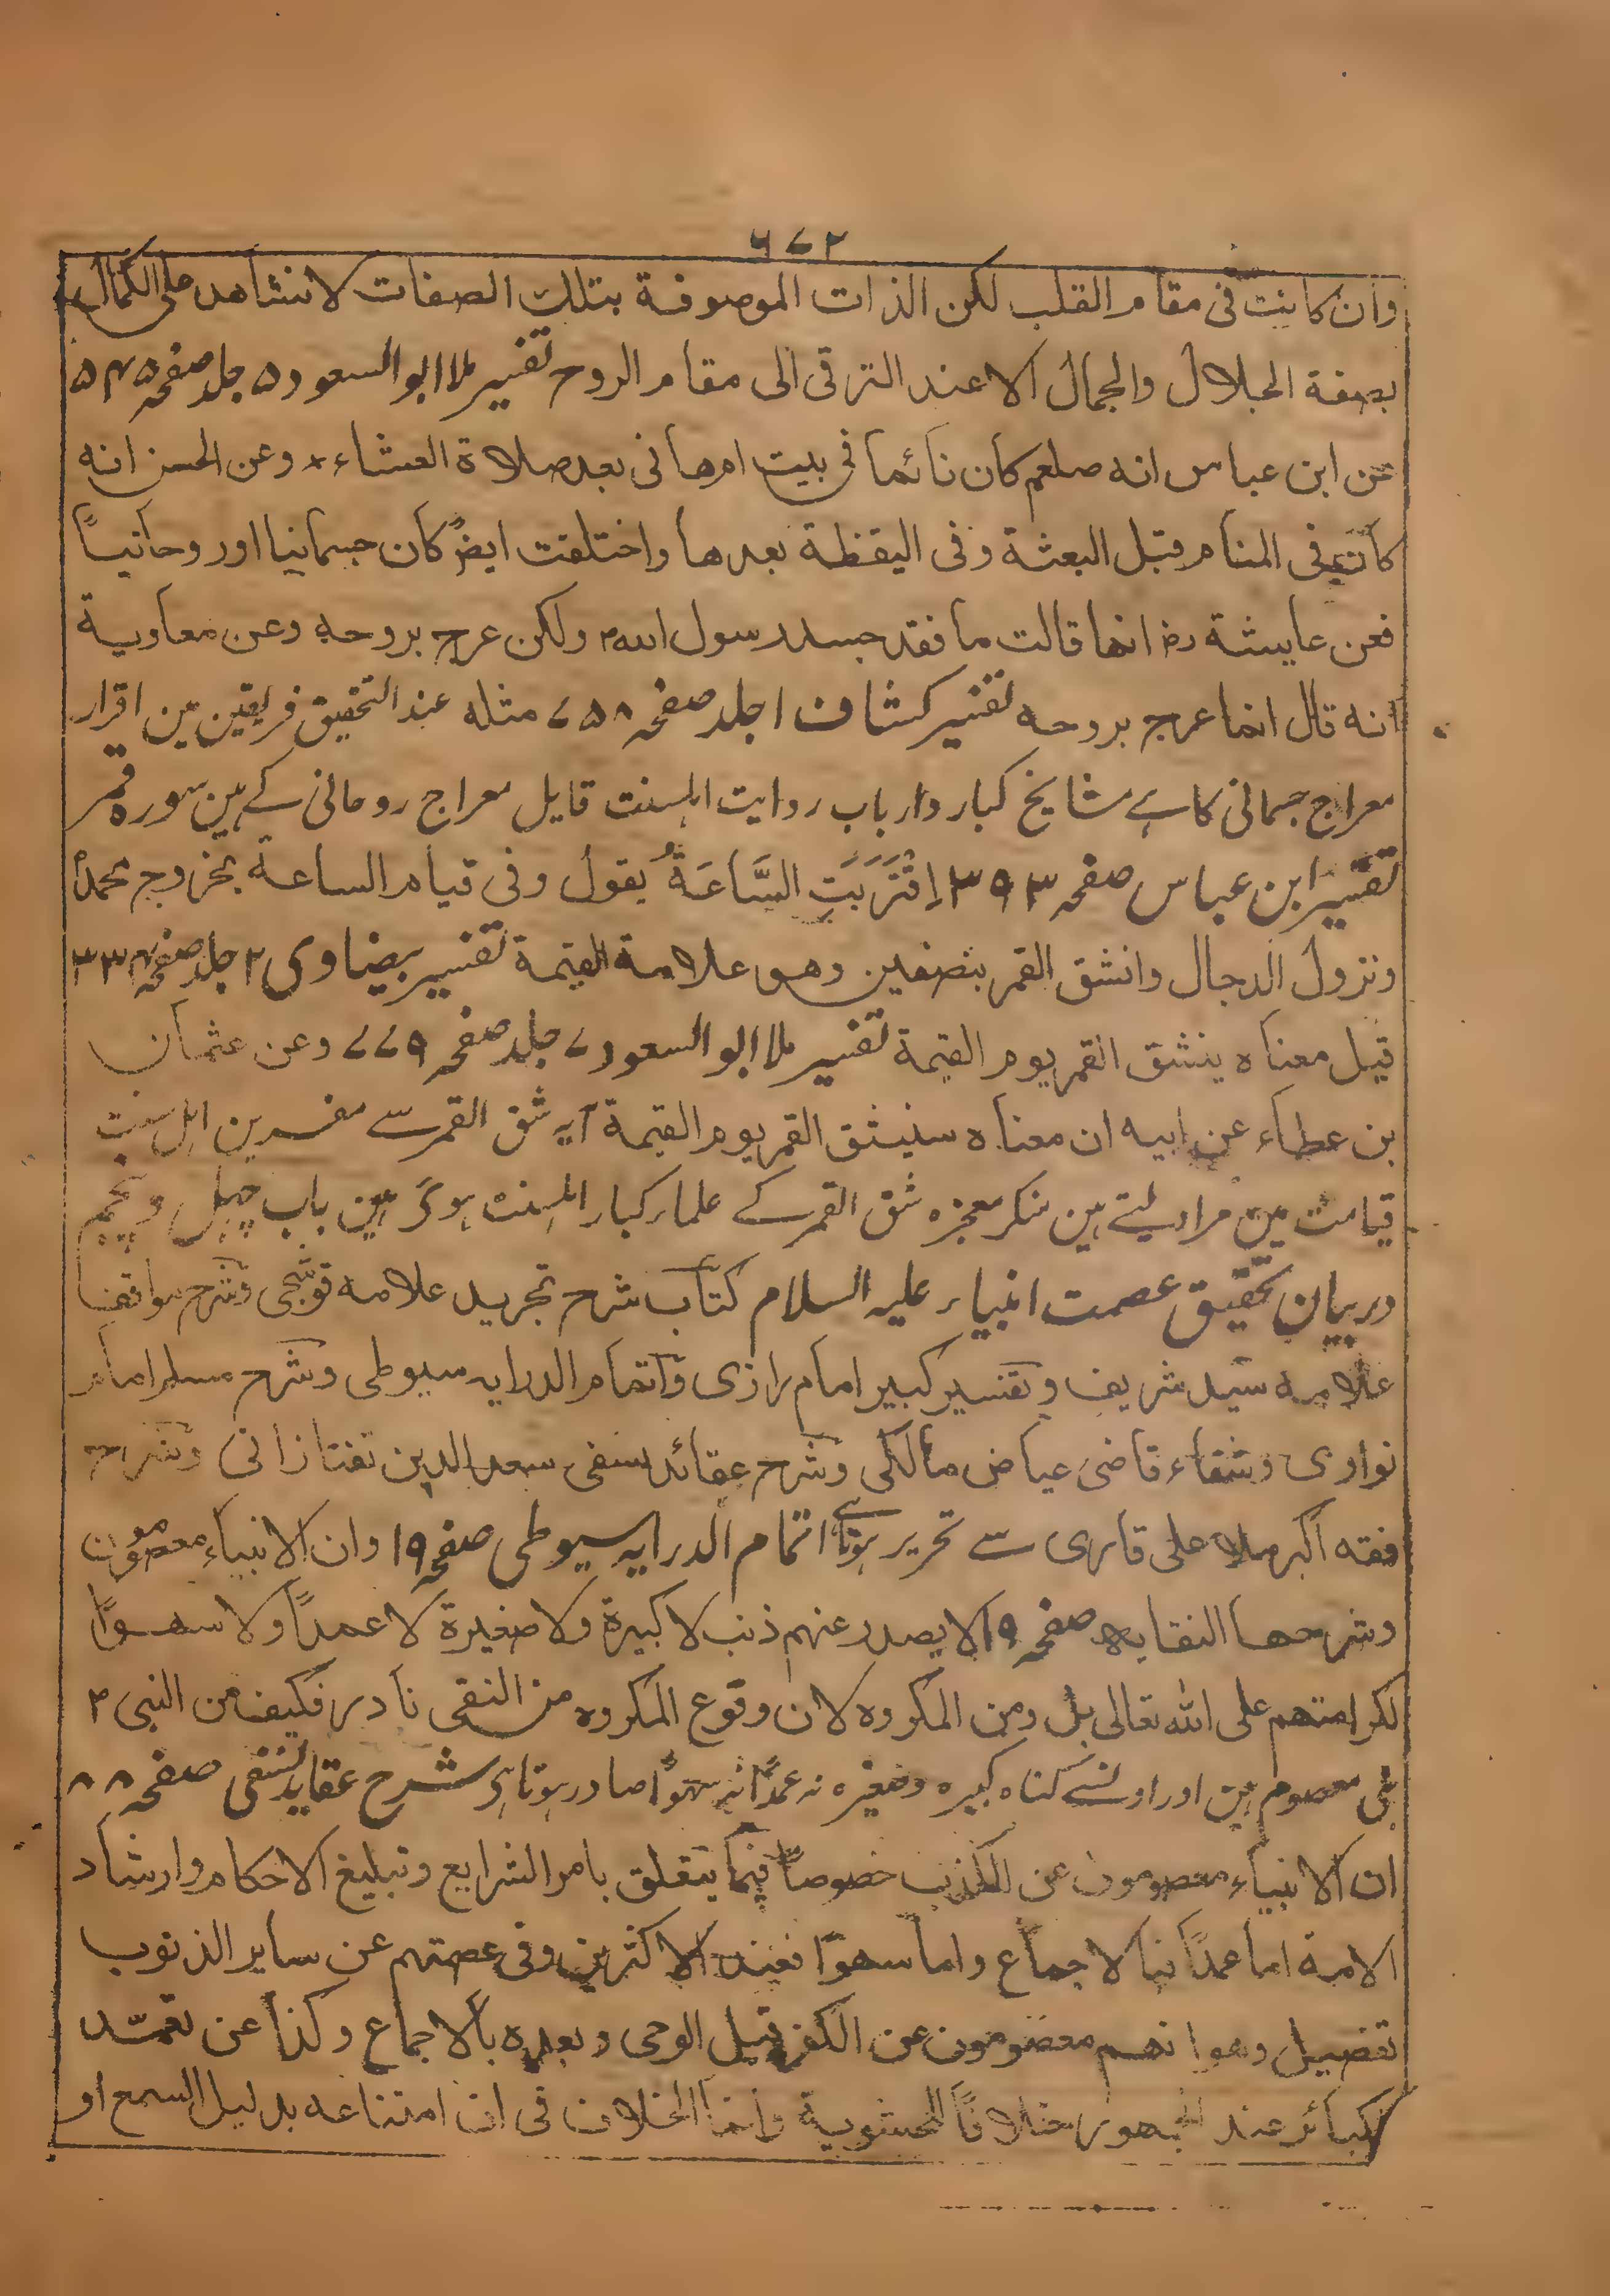 ٦٧٢
وان كانت فى مقام القلب لكن الذات الموصوفة بتلك الصفات لا تشاهد على الكمال
بصفة الجلال والجمال الا عند الترقى الى مقام الروح تفسير ملا ابو السعود ۵ جلد صفحہ ۵۴۵
عن ابن عباس انه صلعم كان نائما فى بيت ام هانى بعد صلاة العشاء وعن الحسن انه
كان فى المنام قبل البعثة وفى اليقظة بعدها واختلفت ايضً كان جسمانيا اور وحانياً
فعن عايشة رض انها قالت ما فقد جسد رسول الله ولكن عرج بروحه وعن معاوية
انه قال انما عرج بروحه تفسير كشاف ا جلد صفحہ ۷۵۸ مثله عند التحقیق فریقین مین اقرار
معراج جسمانی کا ہے مشایخ کبار وارباب روایت اہلسنت قایل معراج روحانی کے ہین سورہ قمر
تفسیر ابن عباس صفحہ ۳۹۳ اِقْتَرَبَتِ السَّاعَةُ يقول وفى قيام الساعة بخروج محمد
ونزول الدجال وانشق القمر بنصفين وهو علامة القيمة تفسير بيضاوى ۲ جلد صفحہ ۳۳۴
قيل معناه ينشق القمر يوم القيمة تفسير ملا ابو السعود ۷ جلد صفحہ ۷۷۹ وعن عثمان
بن عطاء عن ابيه ان معناه سينشق القمر يوم القيمة آیہ شق القمر سے مفسرین اہل سنت
قیامت مین مراد لیتے ہین منکر معجزہ شق القمر کے علمار کبار اہلسنت ہوئے ہین باب چہل وپنجم
در بیان تحقیق عصمت انبیاء علیہ السلام کتاب شرح تجرید علامه قوشجی وشرح مواقف
علامه سید شریف وتفسیر کبیر امام رازی واتمام الدرایه سیوطی وشرح مسلم امام
نواوی وشفاء قاضی عیاض مالکی وشرح عقائد نسفی سعد الدین تفتازانی وشرح
فقه اکبر ملا علی قاری سے تحریر ہوتا ہے اتمام الدرایہ سیوطی صفحہ ۱۹ وان الانبياء معصومون
وشرحها النقايه صفحہ ۱۹ لا يصدر عنهم ذنب لا كبيرة ولا صغيرة لا عمداً ولا سهواً
لكرامتهم على الله تعالى بل ومن المكروه لان وقوع المكروه من التقى نادر فكيف من النبى
نبی معصوم ہین اور اونسے کناہ کبیرہ وصغیرہ نہ عمداً نہ سہواً صادر ہوتا ہی شرح عقاید نسفی صفحہ ۸۸
ان الانبياء معصومون عن الكذب خصوصاً فيما يتعلق بامر الشرايع وتبليغ الاحكام وارشاد
الامة اما عمداً فبالاجماع واما سهواً فعند الاكثرين وفى عصمتهم عن ساير الذنوب
تفصيل وهو انهم معصومون عن الكفر قبل الوحى وبعده بالاجماع وكذا عن تعمّد
الكبائر عند الجمهور خلافاً للحشوية وانما الخلاف فى ان امتناعه بدليل السمع او